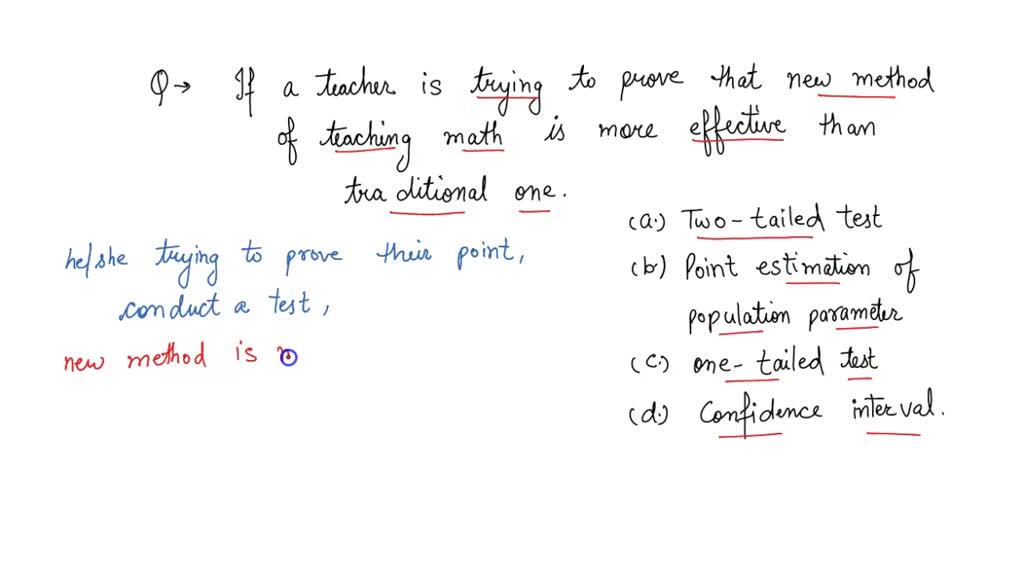 Q→ If a teacher is trying to prove that new method
of teaching math is more effective than
traditional one.
(a.) Two-tailed test
(b.) Point estimation of
population parameter
(c.) one-tailed test
(d.) Confidence interval.
he/she trying to prove their point,
conduct a test,
new method is